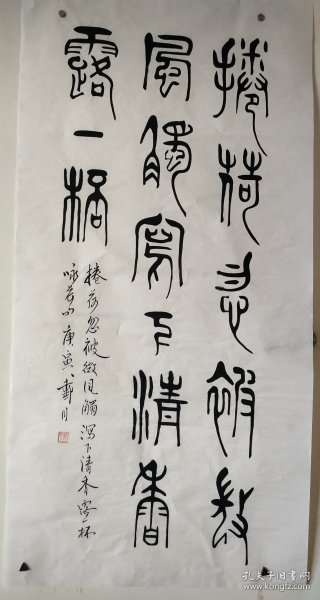 捲荷忽被微
風觸寫下清香
露一杯
捲荷忽被微風觸瀉下清香露一杯
咏荷 庚寅 戴月
孔夫子旧书网
book.kongfz.com